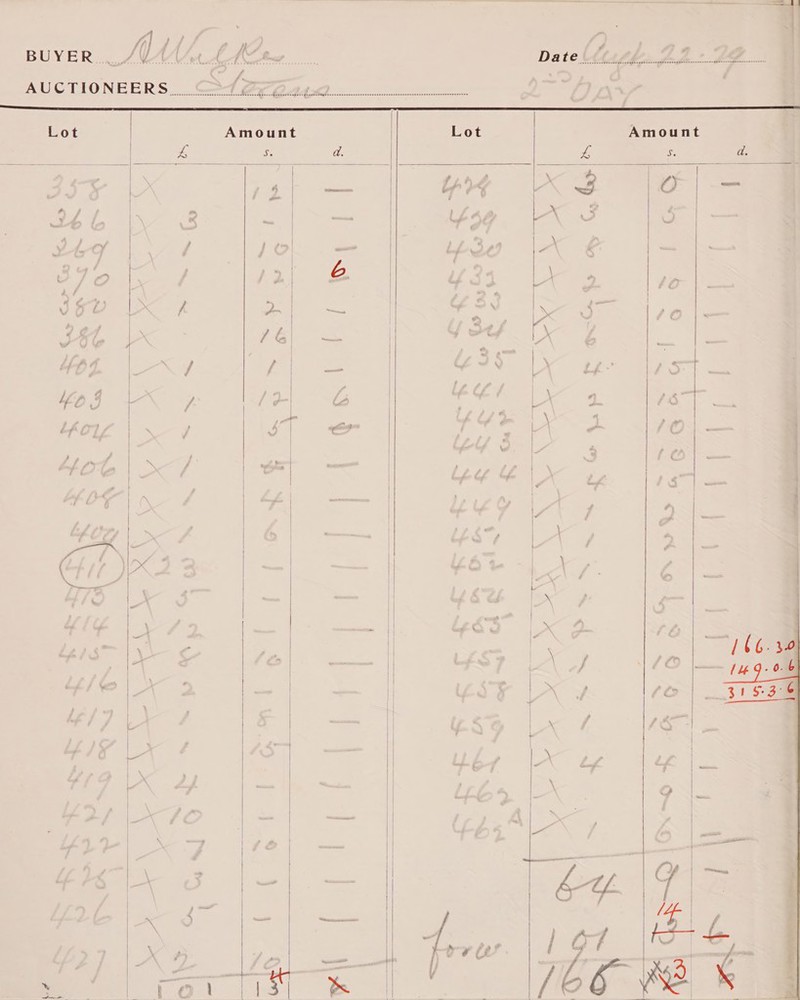 BUYER A Wilkes
Date Aug. 22-29
AUCTIONEERS Stevens
2nd DAY
Lot Amount Lot Amount
£ s. d. £ s. d.
358 X 12 —
366 X 3 — —
369 X 1 10 —
370 X 1 12 6
380 X 1 2 —
386 X 16 —
402 X 1 1 —
403 X 1 12 6
404 X 1 5
406 X 1 —
408 X 1 4 —
409 X 1 6 —
411 X 23 — —
413 X 5 — —
414 X 12 — —
415 X 8 10 —
416 X 2 — —
417 X 1 8 —
418 X 1 15 —
419 X 4 — —
421 X 10 — —
422 X 7 10 —
425 X 3 — —
426 X 5 — —
427 X 2 10 —
101
X 3 0 —
429 X 3 5 —
430 X 8 — —
431 X 2 10 —
433 X 5 10 —
434 X 6 — —
435 X 4 15 —
441 X 2 15 —
442 X 2 10 —
443 3 10 —
444 X 4 15 —
449 X 1 2 —
451 X 1 2 —
452 X 1 6 —
454 X 1 5 —
455 X 2 10 —
457 X 1 10 —
458 X 1 10 —
459 X 1 15 —
461 X 4 4 —
462 X 9 —
462A X 1 6 —
64 9 —
14
forw 101 6
166 3
149.0.6
315.3.6